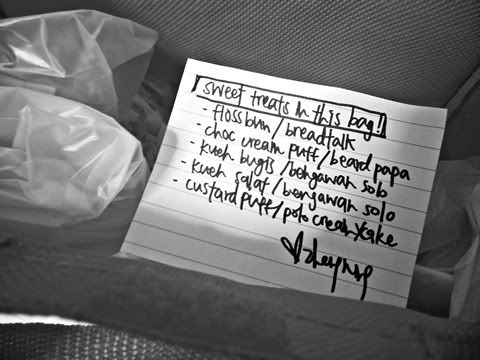 sweet treats in this bag!
- floss bun / breadtalk
- choc cream puff / beard papa
- kueh bugis / bengawan solo
- kueh salat / bengawan solo
- custard puff / polo cream cake